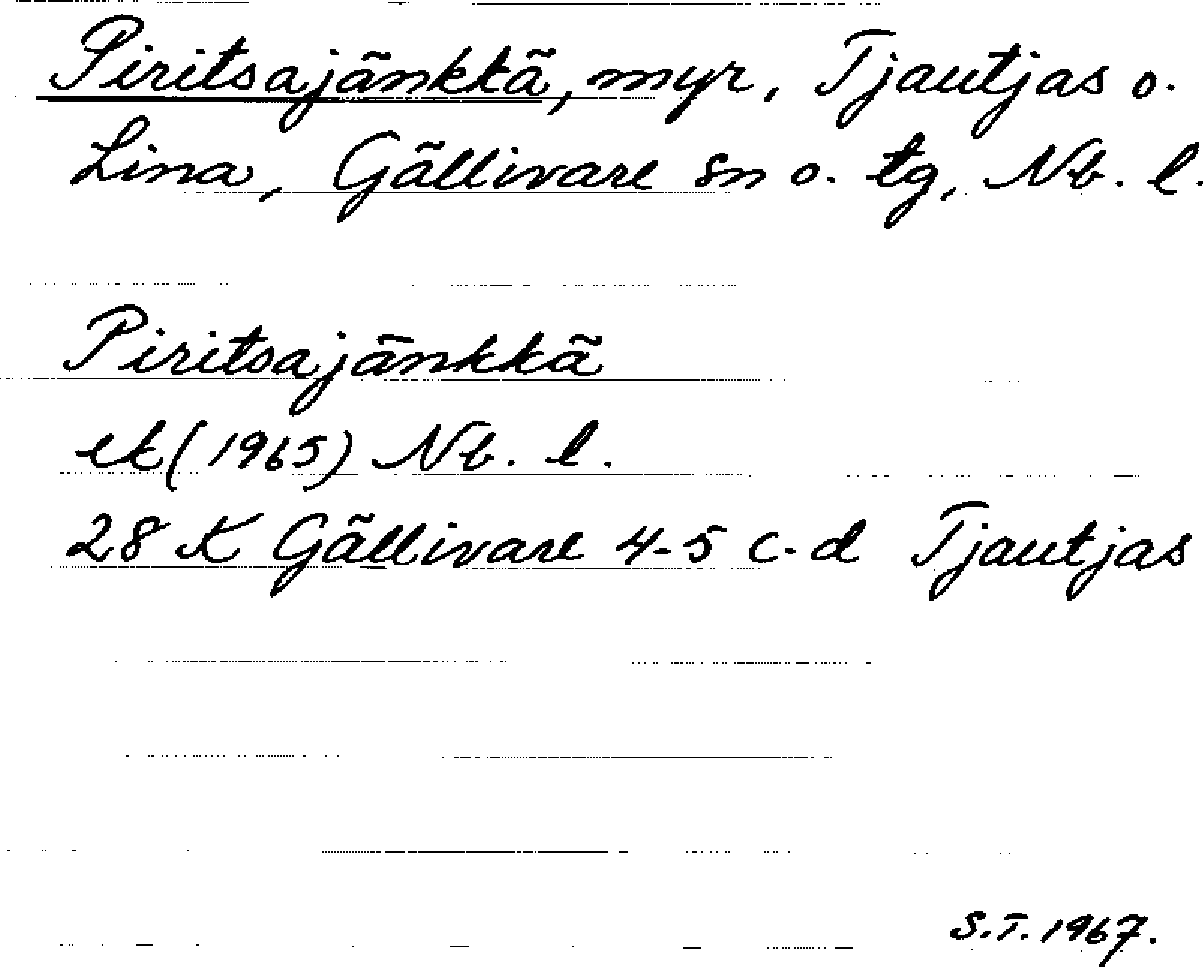 Piritsajänkkä, myr, Tjautjas o.
Lina, Gällivare sn o. tg, Nb. l.
Piritsajänkkä
ek (1965) Nb. l.
28 K Gällivare 4-5 c-d Tjautjas
S.T. 1967.